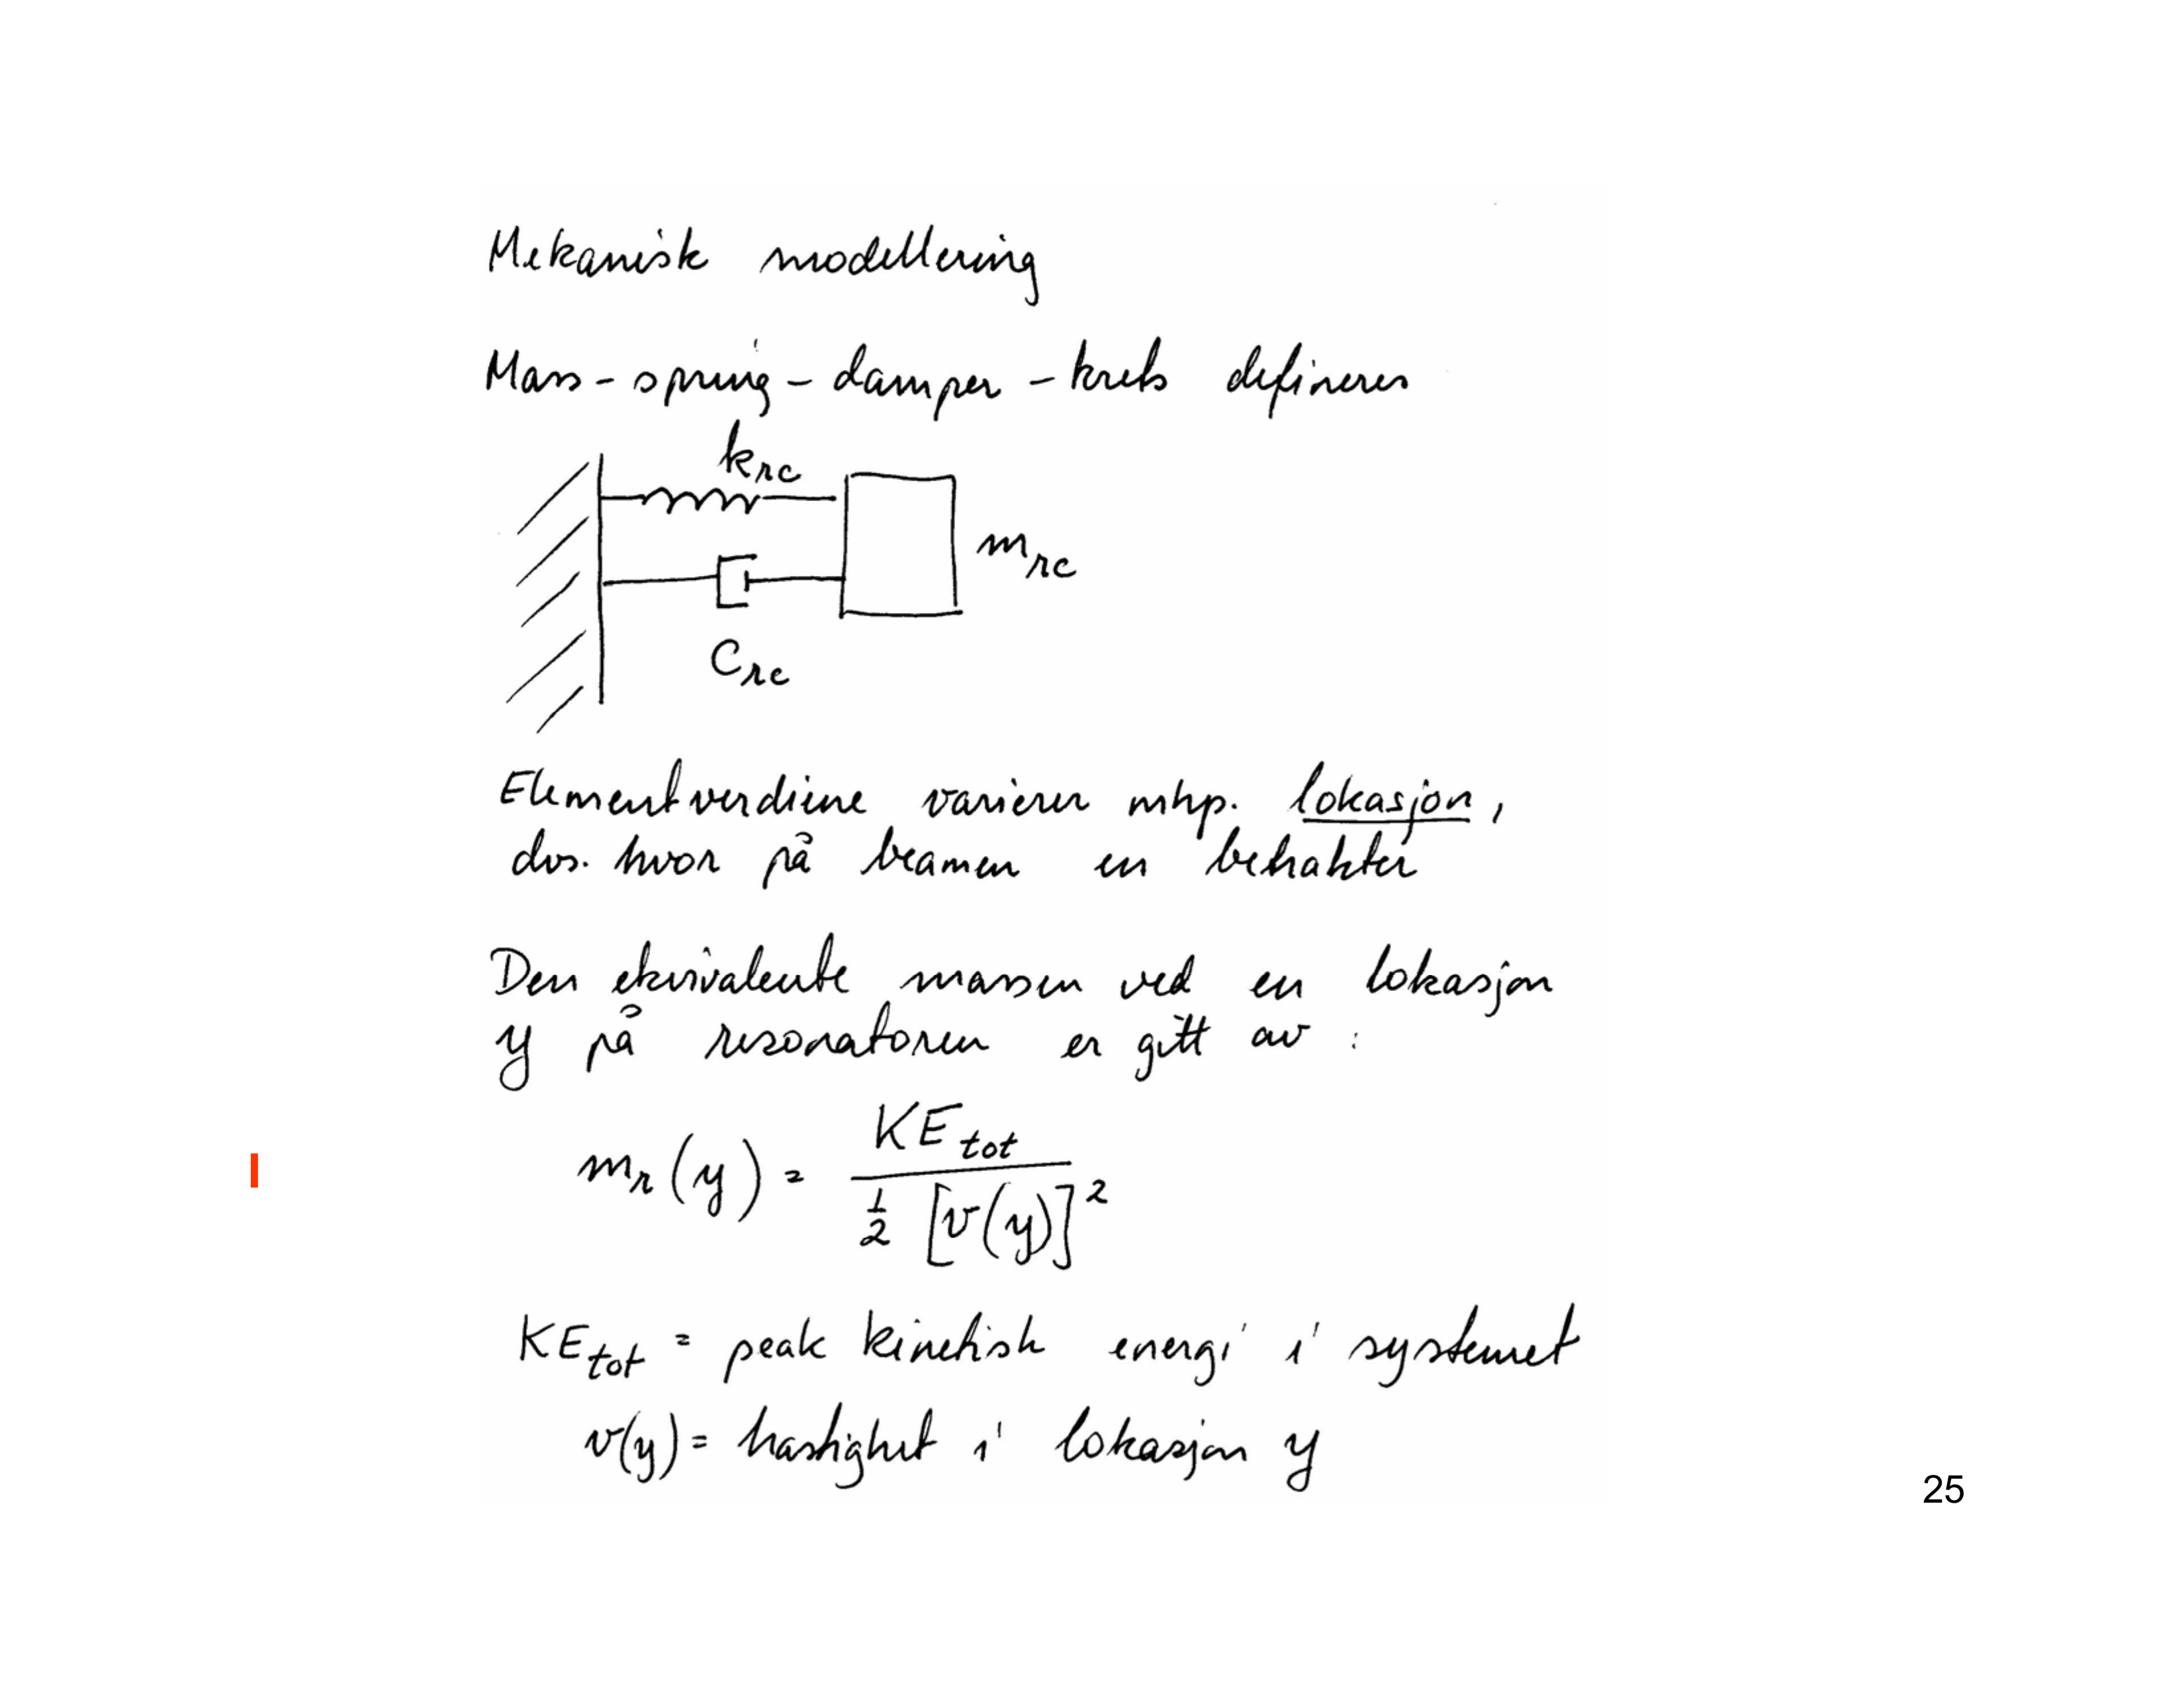 Mekanisk modellering
Mass-spring-damper-krets defineres
k_rc
m_rc
c_rc
Elementverdiene varierer mhp. lokasjon,
dvs. hvor på beamen en betrakter
Den ekvivalente massen ved en lokasjon
y på resonatoren er gitt av :
m_r(y) = KE_tot / ½ [v(y)]²
KE_tot = peak kinetisk energi i systemet
v(y) = hastighet i lokasjon y
25